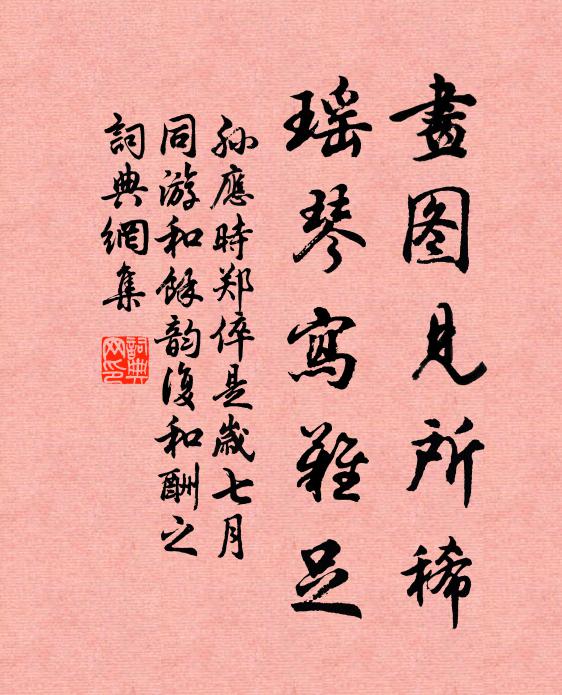 畫图見所稀
瑶琴寫難足
孙應時郑倅是歲七月
同游和餘韵復和酬之
詞典網集
詞典网印